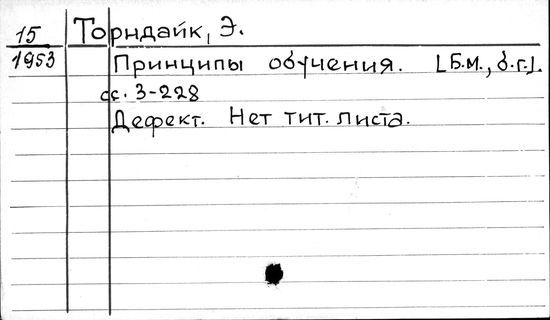 15 Торндайк, Э.
1953 Принципы обучения. [Б.м., б.г.].
сс. 3-228
Дефект. Нет тит. листа.